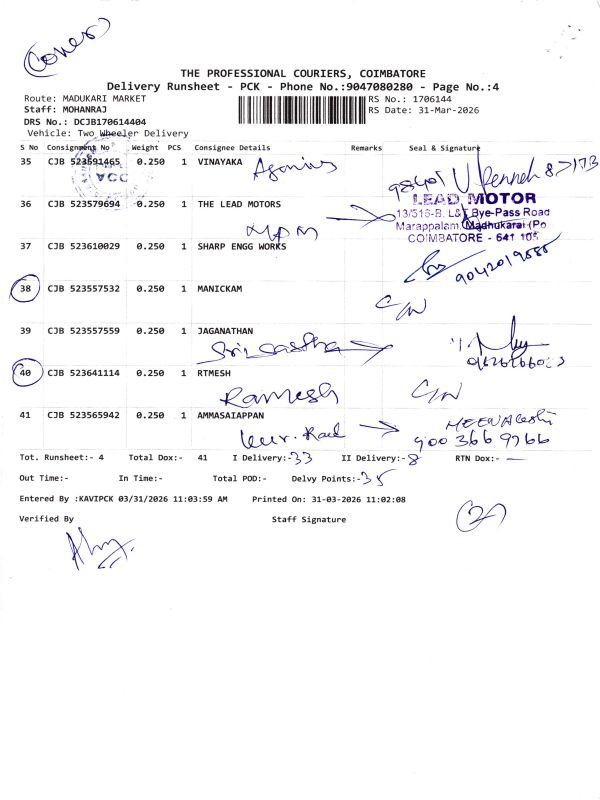 (Cover)
THE PROFESSIONAL COURIERS, COIMBATORE
Delivery Runsheet - PCK - Phone No.:9047080280 - Page No.:4
Route: MADUKARI MARKET
RS No.: 1706144
Staff: MOHANRAJ
RS Date: 31-Mar-2026
DRS No.: DCJB170614404
Vehicle: Two Wheeler Delivery
S No Consignment No Weight PCS Consignee Details Remarks Seal & Signature
35 CJB 523591465 0.250 1 VINAYAKA
ACC
36 CJB 523579694 0.250 1 THE LEAD MOTORS
LEAD MOTOR
13/516-B, L&T Bye-Pass Road
Marappalam, Madhukarai (Po
COIMBATORE - 641 105
37 CJB 523610029 0.250 1 SHARP ENGG WORKS
38 CJB 523557532 0.250 1 MANICKAM
C/N
39 CJB 523557559 0.250 1 JAGANATHAN
40 CJB 523641114 0.250 1 RTMESH
Ramesh C/N
41 CJB 523565942 0.250 1 AMMASAIAPPAN
900 366 9766
Tot. Runsheet:- 4 Total Dox:- 41 I Delivery:-33 II Delivery:-8 RTN Dox:- —
Out Time:- In Time:- Total POD:- Delvy Points:-35
Entered By :KAVIPCK 03/31/2026 11:03:59 AM Printed On: 31-03-2026 11:02:08
Verified By Staff Signature